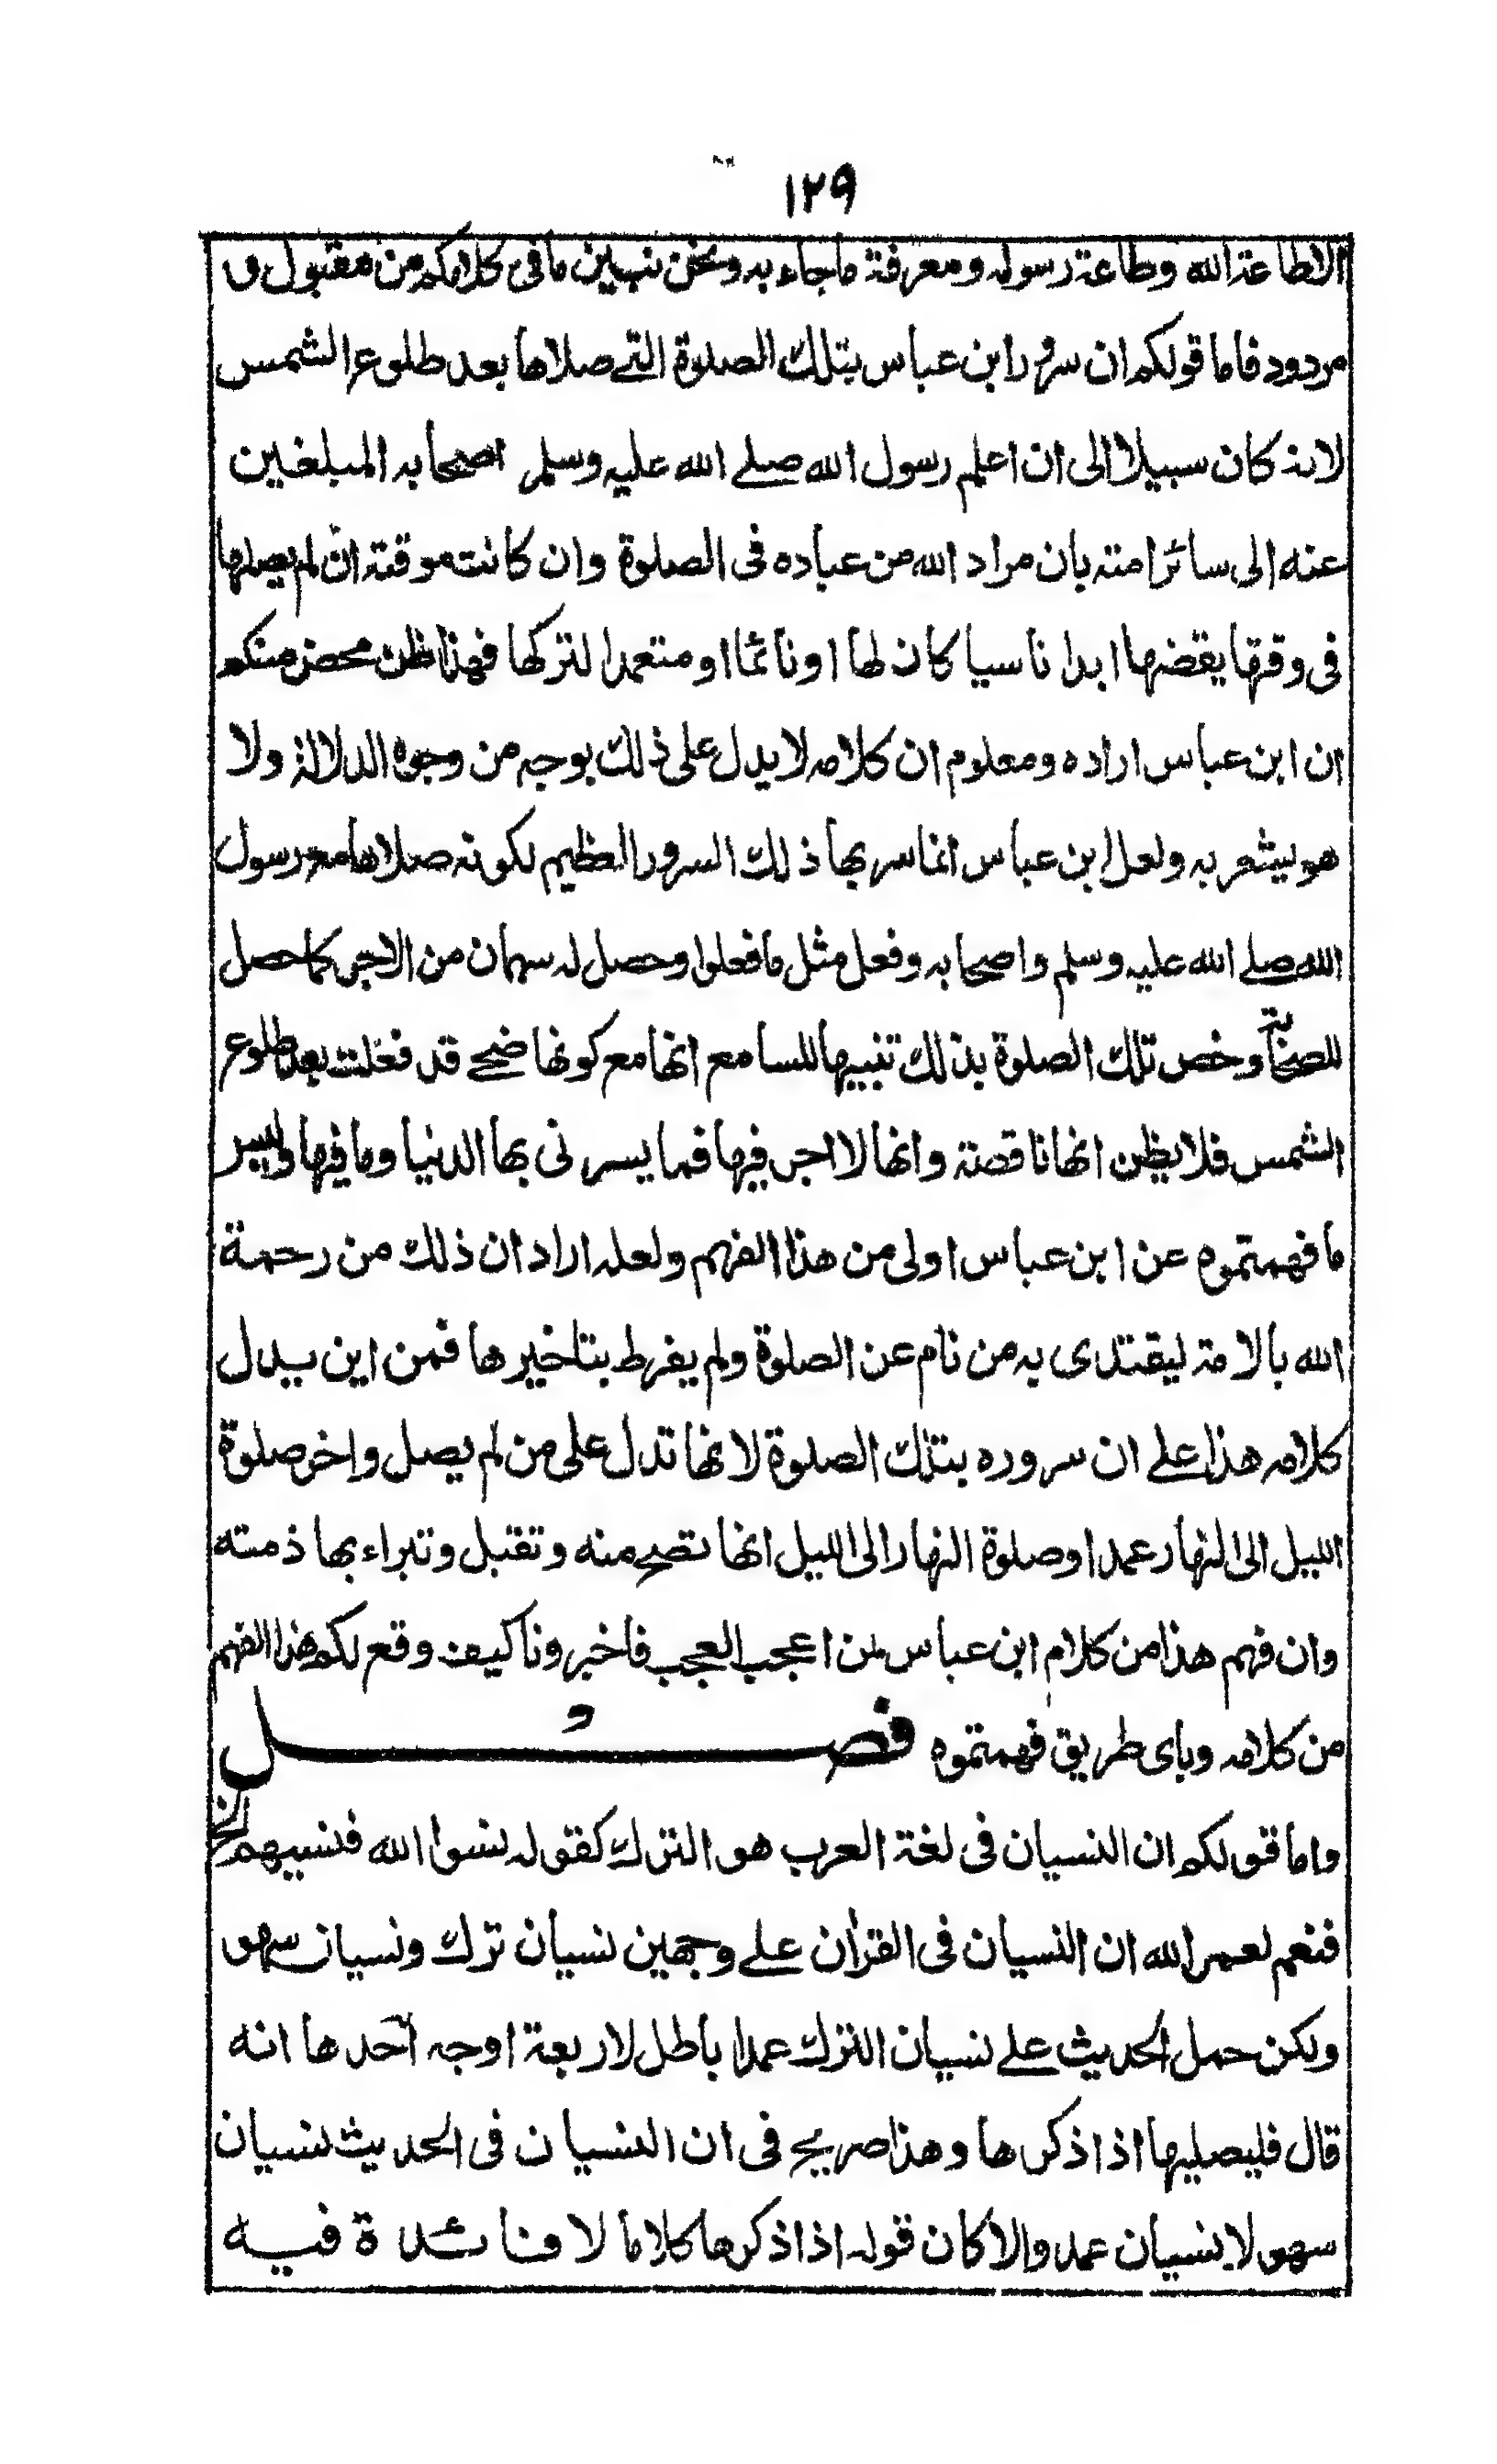 ١٢٩
الاطاعة الله وطاعة رسوله ومعرفة ماجاء به ونحن نبين مافى كلامكم من مقبول و
مردود فاما قولكم ان سرور ابن عباس بتلك الصلوة التے صلاها بعد طلوع الشمس
لانه كان سبيلا الى ان اعلم رسول الله صلے الله عليه وسلم اصحابه المبلغين
عنه الى سائر امته بان مراد الله من عباده فى الصلوة وان كانت موقتة ان لم يصلها
فى وقتها يقضها ابدا ناسيا كان لها او نائما او متعمدا لتركها فهذا ظن محض منكم
ان ابن عباس اراده ومعلوم ان كلامه لا يدل على ذلك بوجه من وجوه الدلالة ولا
هو يشعر به ولعل ابن عباس انما سر بها ذلك السرور العظيم لكونه صلاها مع رسول
الله صلے الله عليه وسلم واصحابه وفعل مثل مافعلوا وحصل له سهمان من الاجر كما حصل
للصحابة وخص تلك الصلوة بذلك تنبيها للسامع انها مع كونها ضحے قد فعلت بعد طلوع
الشمس فلا يظن انها ناقصة وانها لا اجر فيها فما يسرنى بها الدنيا وما فيها وليس
ما فهمتموه عن ابن عباس اولى من هذا الفهم ولعله اراد ان ذلك من رحمة
الله بالامة ليقتدى به من نام عن الصلوة ولم يفرط بتاخيرها فمن اين يدل
كلامه هذا علے ان سروره بتلك الصلوة لانها تدل على من لم يصل واخر صلوة
الليل الى النهار عمدا وصلوة النهار الى الليل انها تصح منه وتقبل وتبراء بها ذمته
وان فهم هذا من كلام ابن عباس لمن اعجب العجب فاخبرونا كيف وقع لكم هذا الفهم
من كلامه وباى طريق فهمتموه فصــــــل
واما قولكم ان النسيان فى لغة العرب هو الترك كقوله نسوا الله فنسيهم الخ
فنعم لعمر الله ان النسيان فى القرأن علے وجهين نسيان ترك ونسيان سهو
ولكن حمل الحديث علے نسيان الترك عمدا باطل لاربعة اوجه احدها انه
قال فليصليها اذا ذكرها وهذا صريح فى ان النسيان فى الحديث نسيان
سهو لا نسيان عمد والا كان قوله اذا ذكرها كلاما لا فائدة فيه